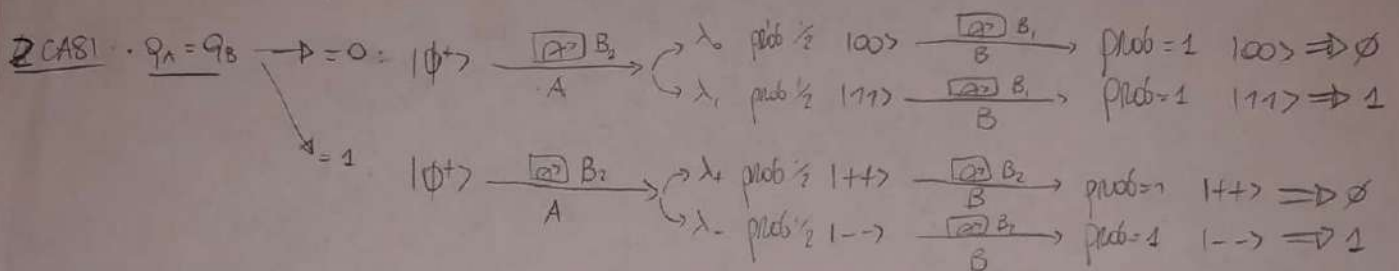 2 CASI · q_A = q_B → = 0 : |ϕ⁺⟩ —B₂ / A→ λ₀ prob ½ |00⟩ —B₁ / B→ prob = 1 |00⟩ ⇒ Ø
λ₁ prob ½ |11⟩ —B₁ / B→ prob = 1 |11⟩ ⇒ 1
= 1 |ϕ⁺⟩ —B₂ / A→ λ₊ prob ½ |++⟩ —B₂ / B→ prob = 1 |++⟩ ⇒ Ø
λ₋ prob ½ |--⟩ —B₂ / B→ prob = 1 |--⟩ ⇒ 1